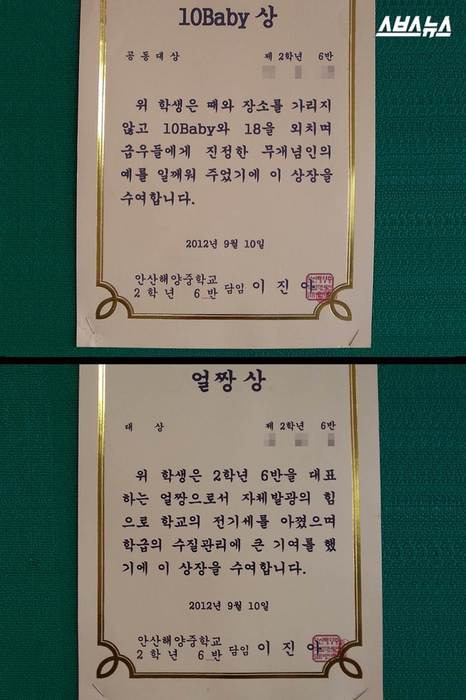 스브스뉴스
10Baby 상
공동대상 제 2학년 6반
위 학생은 때와 장소를 가리지
않고 10Baby와 18을 외치며
급우들에게 진정한 무개념인의
예를 일깨워 주었기에 이 상장을
수여합니다.
2012년 9월 10일
안산해양중학교
2학년 6반 담임 이진아
얼짱상
대상 제 2학년 6반
위 학생은 2학년 6반을 대표
하는 얼짱으로서 자체발광의 힘
으로 학교의 전기세를 아꼈으며
학급의 수질관리에 큰 기여를 했
기에 이 상장을 수여합니다.
2012년 9월 10일
안산해양중학교
2학년 6반 담임 이진아